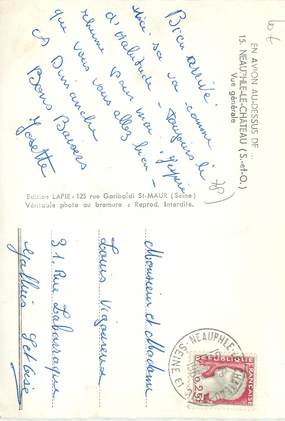 EN AVION AU-DESSUS DE ...
15. NEAUPHLE-LE-CHATEAU (S.-et-O.)
Vue générale
Bien arrivé.
Ici sa va comme
d'habitude - toujours le
rhume pour moi. J'espère
que vous vous allez bien
A Dimanche
Bons Baisers
Josette
Edition LAPIE - 125 rue Garibaldi St-MAUR (Seine)
Véritable photo au bromure - Reprod. Interdite.
Monsieur et Madame
Louis Vigoureux
31, Rue Labouraque
Gallius S et Oise
NEAUPHLE
SEINE
REPUBLIQUE FRANÇAISE
0,25